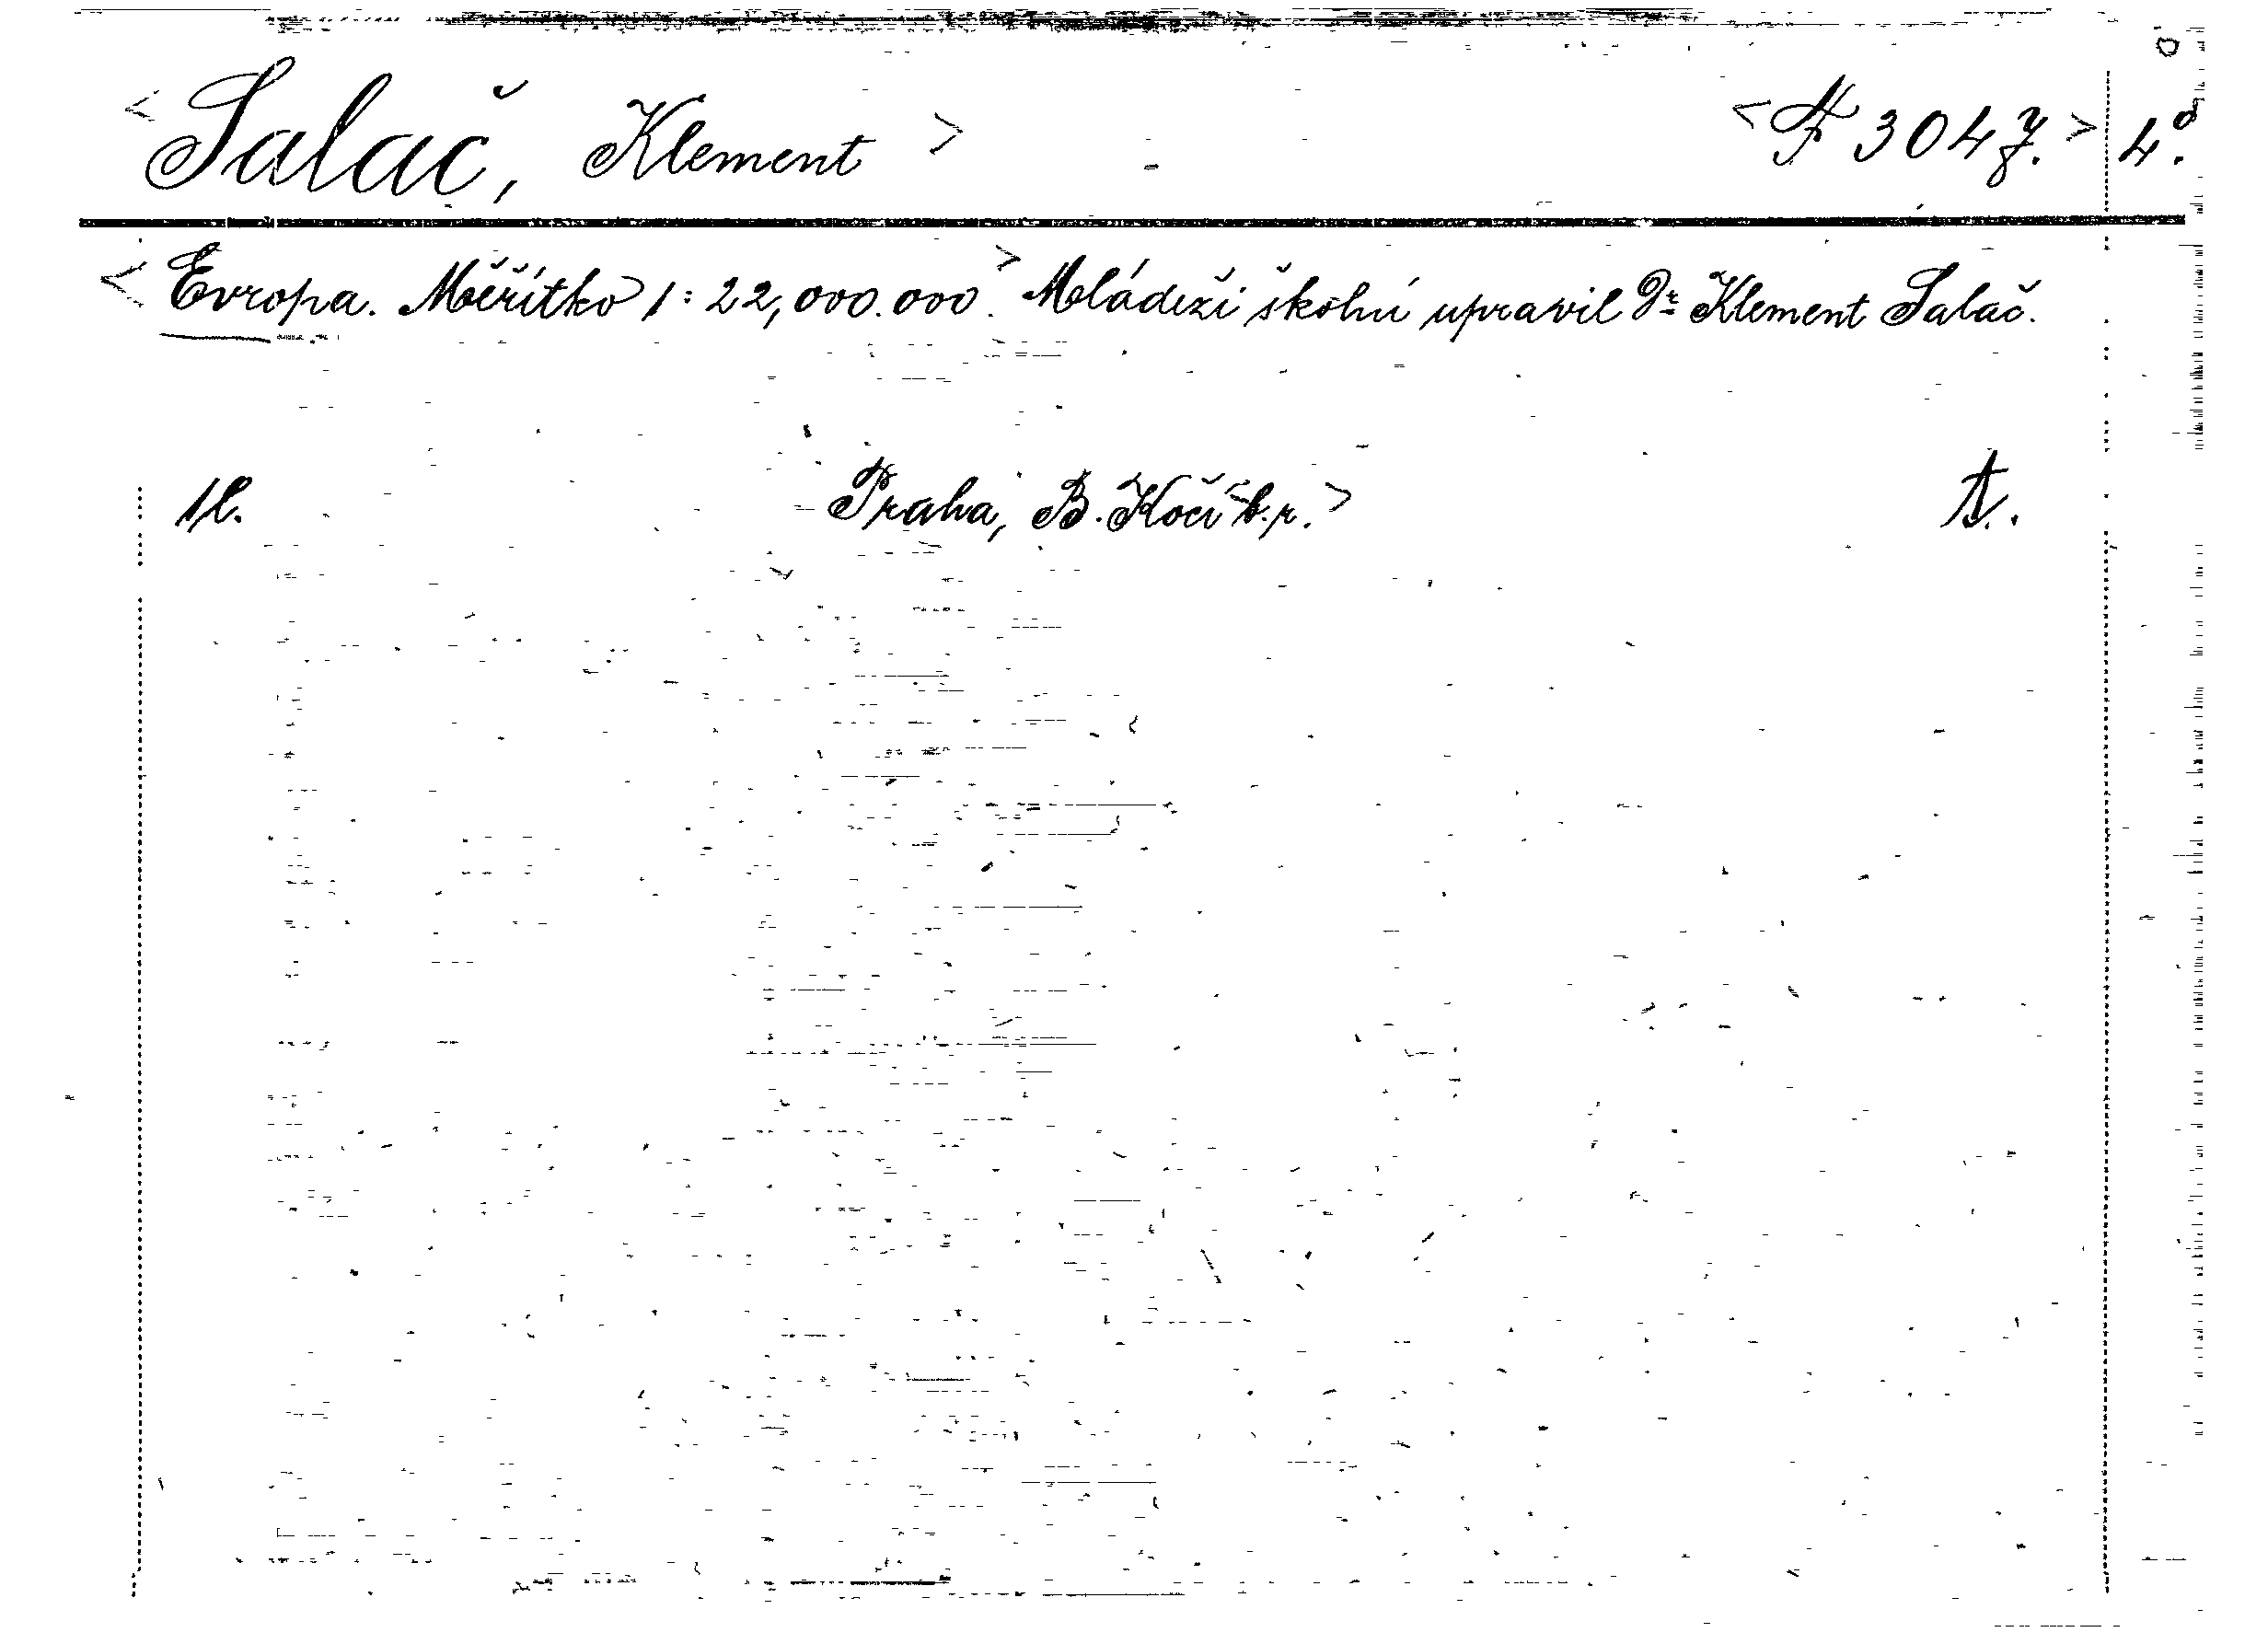 <Salač, Klement> <F 304 Z.> 4°.
<Evropa. Měřítko 1: 22,000.000.> Mládeži školní upravil Dr Klement Salač.
1l. Praha, B. Kočí b.r.> A.